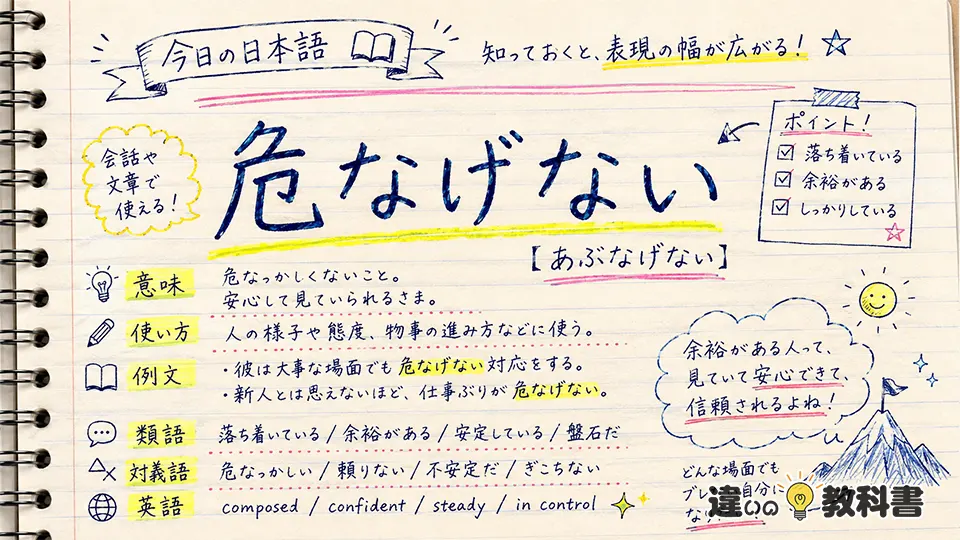 今日の日本語
知っておくと、表現の幅が広がる！
会話や
文章で
使える！
危なげない
【あぶなげない】
ポイント！
落ち着いている
余裕がある
しっかりしている
意味
危なっかしくないこと。
安心して見ていられるさま。
使い方
人の様子や態度、物事の進み方などに使う。
例文
・彼は大事な場面でも危なげない対応をする。
・新人とは思えないほど、仕事ぶりが危なげない。
類語
落ち着いている / 余裕がある / 安定している / 盤石だ
対義語
危なっかしい / 頼りない / 不安定だ / ぎこちない
英語
composed / confident / steady / in control
余裕がある人って、
見ていて安心できて、
信頼されるよね！
どんな場面でも
ブレ
自分に
違いの教科書